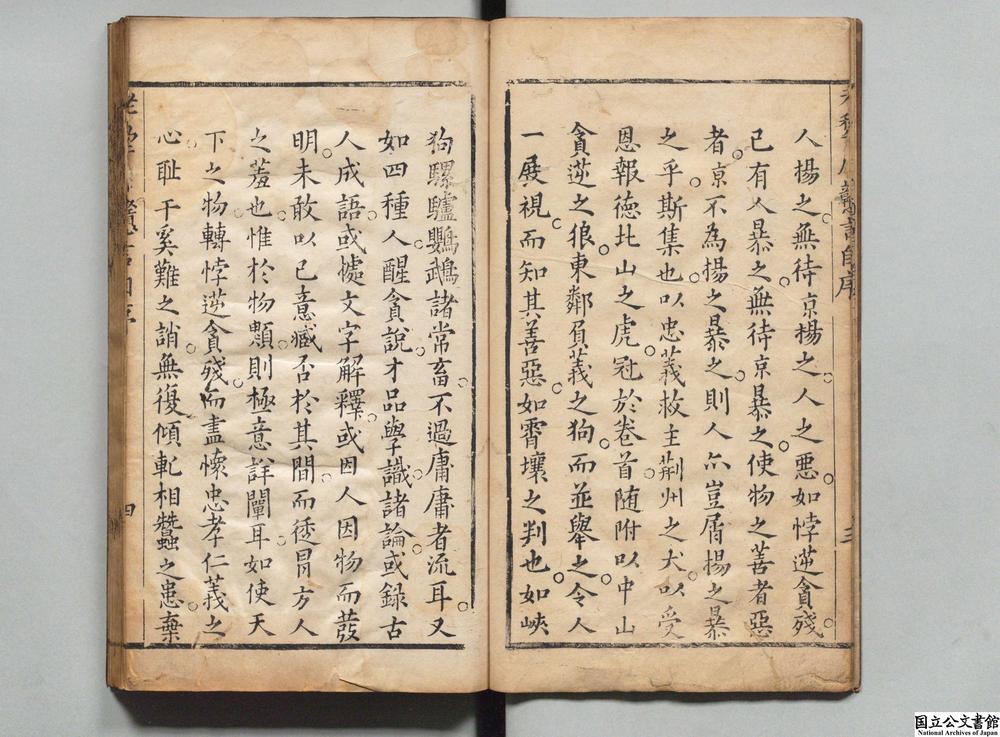 人揚之無待京揚之人之悪如悖逆貪殘
已有人暴之無待京暴之使物之善者惡
者京不為揚之暴之則人亦豈屑揚之暴
之乎斯集也以忠義救主荆州之犬以受
恩報徳北山之虎冠於卷首随附以中山
貪逆之狼東鄰負義之狗而並舉之令人
一展視而知其善惡如霄壤之判也如峽
狗騾驢鸚鵡諸常畜不過庸庸者流耳又
如四種人醒貪說才品學識諸論或録古
人成語或㨿文字解釋或因人因物而發
明未敢以已意臧否於其間而透冐方人
之羞也惟於物顆則極意詳闡耳如使天
下之物轉悖逆貪殘而盡懷忠孝仁義之
心耻干奚難之誚無復傾軋相蠶之患棄
三
四
国立公文書館
National Archives of Japan